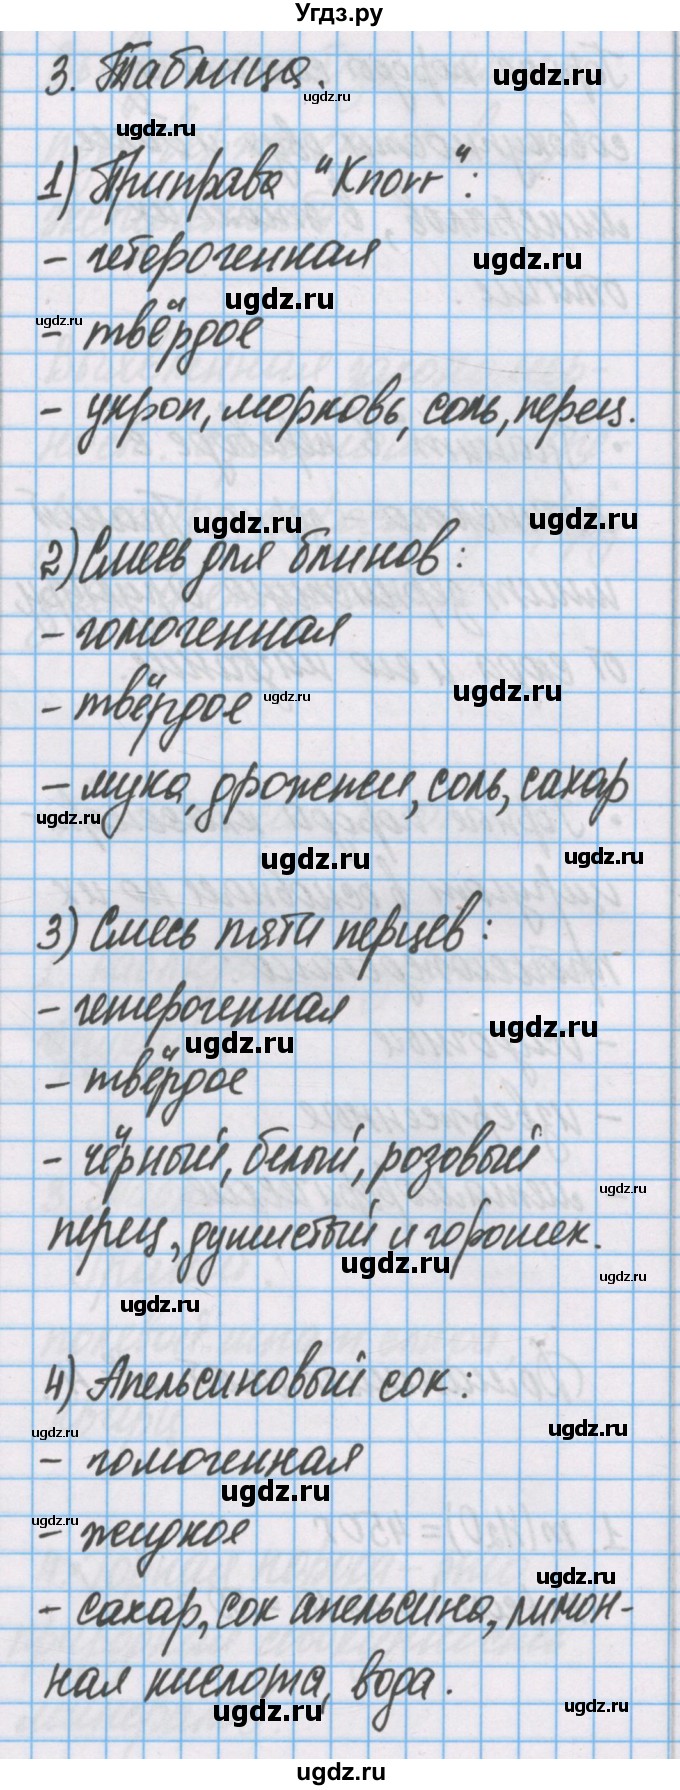 Угдз.ру
3. Таблица.
ugdz.ru
ugdz.ru
ugdz.ru
1) Приправа "Кнорр":
- гетерогенная
ugdz.ru
ugdz.ru
ugdz.ru
- твёрдое
- укроп, морковь, соль, перец.
ugdz.ru
ugdz.ru
2) Смесь для блинов:
- гомогенная
ugdz.ru
- твёрдое
ugdz.ru
- мука, дрожжи, соль, сахар
ugdz.ru
ugdz.ru
ugdz.ru
3) Смесь пяти перцев:
- гетерогенная
ugdz.ru
ugdz.ru
- твёрдое
- чёрный, белый, розовый
ugdz.ru
перец, душистый и горошек.
ugdz.ru
ugdz.ru
ugdz.ru
4) Апельсиновый сок:
ugdz.ru
ugdz.ru
- гомогенная
ugdz.ru
ugdz.ru
- жидкое
ugdz.ru
- сахар, сок апельсина, лимон-
ная кислота, вода.
ugdz.ru
ugdz.ru
ugdz.ru